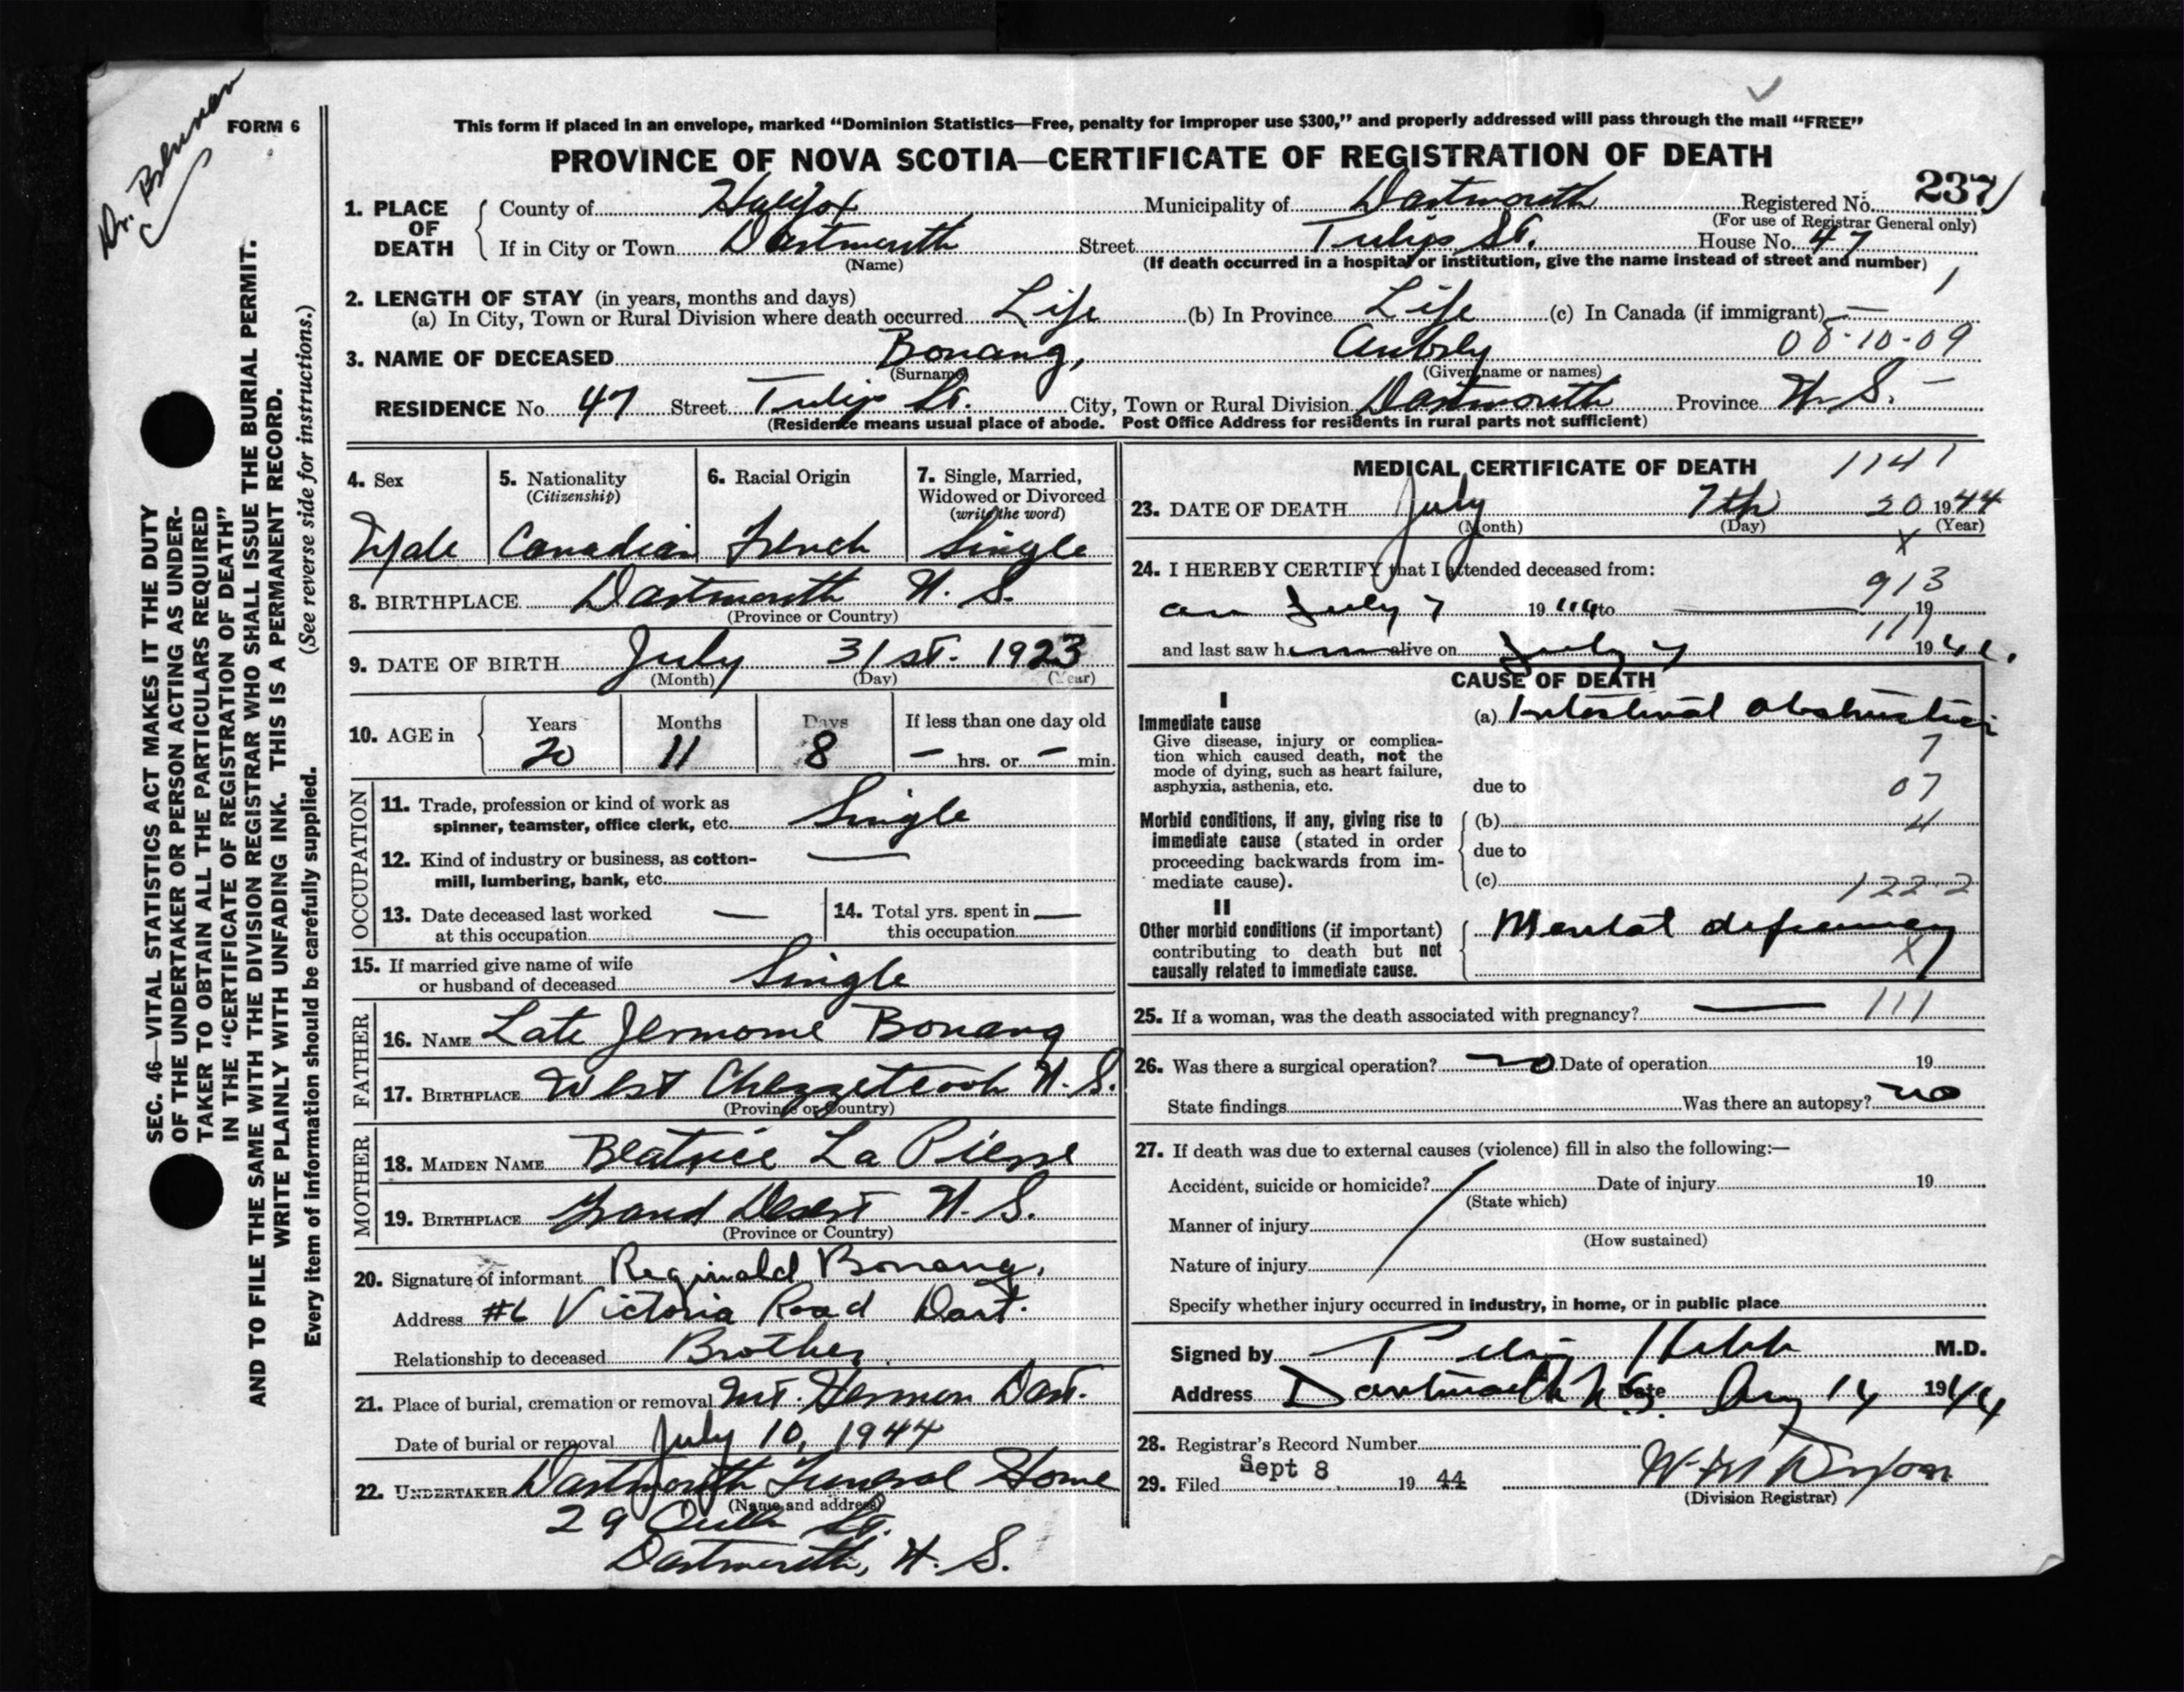 Dr.
FORM 6
This form if placed in an envelope, marked “Dominion Statistics—Free, penalty for improper use $300,” and properly addressed will pass through the mail “FREE”
PROVINCE OF NOVA SCOTIA—CERTIFICATE OF REGISTRATION OF DEATH
237
1. PLACE OF DEATH { County of Halifax Municipality of Dartmouth Registered No.
(For use of Registrar General only)
If in City or Town Dartmouth Street Tulip St. House No. 47
(Name) (If death occurred in a hospital or institution, give the name instead of street and number)
2. LENGTH OF STAY (in years, months and days) 1
(a) In City, Town or Rural Division where death occurred Life (b) In Province Life (c) In Canada (if immigrant) —
3. NAME OF DECEASED Bonang, Aubrey 08-10-09
(Surname) (Given name or names)
RESIDENCE No. 47 Street Tulip St. City, Town or Rural Division Dartmouth Province N. S. —
(Residence means usual place of abode. Post Office Address for residents in rural parts not sufficient)
4. Sex Male
5. Nationality (Citizenship) Canadian
6. Racial Origin French
7. Single, Married, Widowed or Divorced (write the word) Single
8. BIRTHPLACE Dartmouth N. S.
(Province or Country)
9. DATE OF BIRTH July 31st. 1923
(Month) (Day) (Year)
10. AGE in { Years Months Days If less than one day old
20 11 8 — hrs. or — min.
OCCUPATION
11. Trade, profession or kind of work as
spinner, teamster, office clerk, etc. Single
12. Kind of industry or business, as cotton-
mill, lumbering, bank, etc. —
13. Date deceased last worked
at this occupation —
14. Total yrs. spent in
this occupation —
15. If married give name of wife
or husband of deceased Single
FATHER
16. NAME Late Jermome Bonang
17. BIRTHPLACE West Chezzetcook N. S.
(Province or Country)
MOTHER
18. MAIDEN NAME Beatrice La Pierre
19. BIRTHPLACE Grand Desert N. S.
(Province or Country)
20. Signature of informant Reginald Bonang,
Address #6 Victoria Road Dart.
Relationship to deceased Brother
21. Place of burial, cremation or removal Mt. Hermon Dart.
Date of burial or removal July 10, 1944
22. UNDERTAKER Dartmouth Funeral Home
(Name and address)
29 St.
Dartmouth, N. S.
MEDICAL CERTIFICATE OF DEATH 1141
23. DATE OF DEATH July 7th 20 1944
(Month) (Day) (Year)
X
24. I HEREBY CERTIFY that I attended deceased from:
913
on July 7 1944 to — 19
111
and last saw him alive on July 7 1944.
CAUSE OF DEATH
I
Immediate cause
Give disease, injury or complica-
tion which caused death, not the
mode of dying, such as heart failure,
asphyxia, asthenia, etc.
(a) Intestinal obstruction
7
due to 07
Morbid conditions, if any, giving rise to
immediate cause (stated in order
proceeding backwards from im-
mediate cause).
(b) 4
due to
(c) 122-2
II
Other morbid conditions (if important)
contributing to death but not
causally related to immediate cause.
Mental deficiency
X
25. If a woman, was the death associated with pregnancy? — 111
26. Was there a surgical operation? no Date of operation 19
State findings Was there an autopsy? no
27. If death was due to external causes (violence) fill in also the following:—
Accident, suicide or homicide? Date of injury 19
(State which)
Manner of injury
(How sustained)
Nature of injury
Specify whether injury occurred in industry, in home, or in public place
Signed by M.D.
Address Dartmouth N.S. Date Aug 14 1944
28. Registrar's Record Number
29. Filed Sept 8 19 44
(Division Registrar)
SEC. 46—VITAL STATISTICS ACT MAKES IT THE DUTY
OF THE UNDERTAKER OR PERSON ACTING AS UNDER-
TAKER TO OBTAIN ALL THE PARTICULARS REQUIRED
IN THE “CERTIFICATE OF REGISTRATION OF DEATH”
AND TO FILE THE SAME WITH THE DIVISION REGISTRAR WHO SHALL ISSUE THE BURIAL PERMIT.
WRITE PLAINLY WITH UNFADING INK. THIS IS A PERMANENT RECORD.
Every item of information should be carefully supplied. (See reverse side for instructions.)